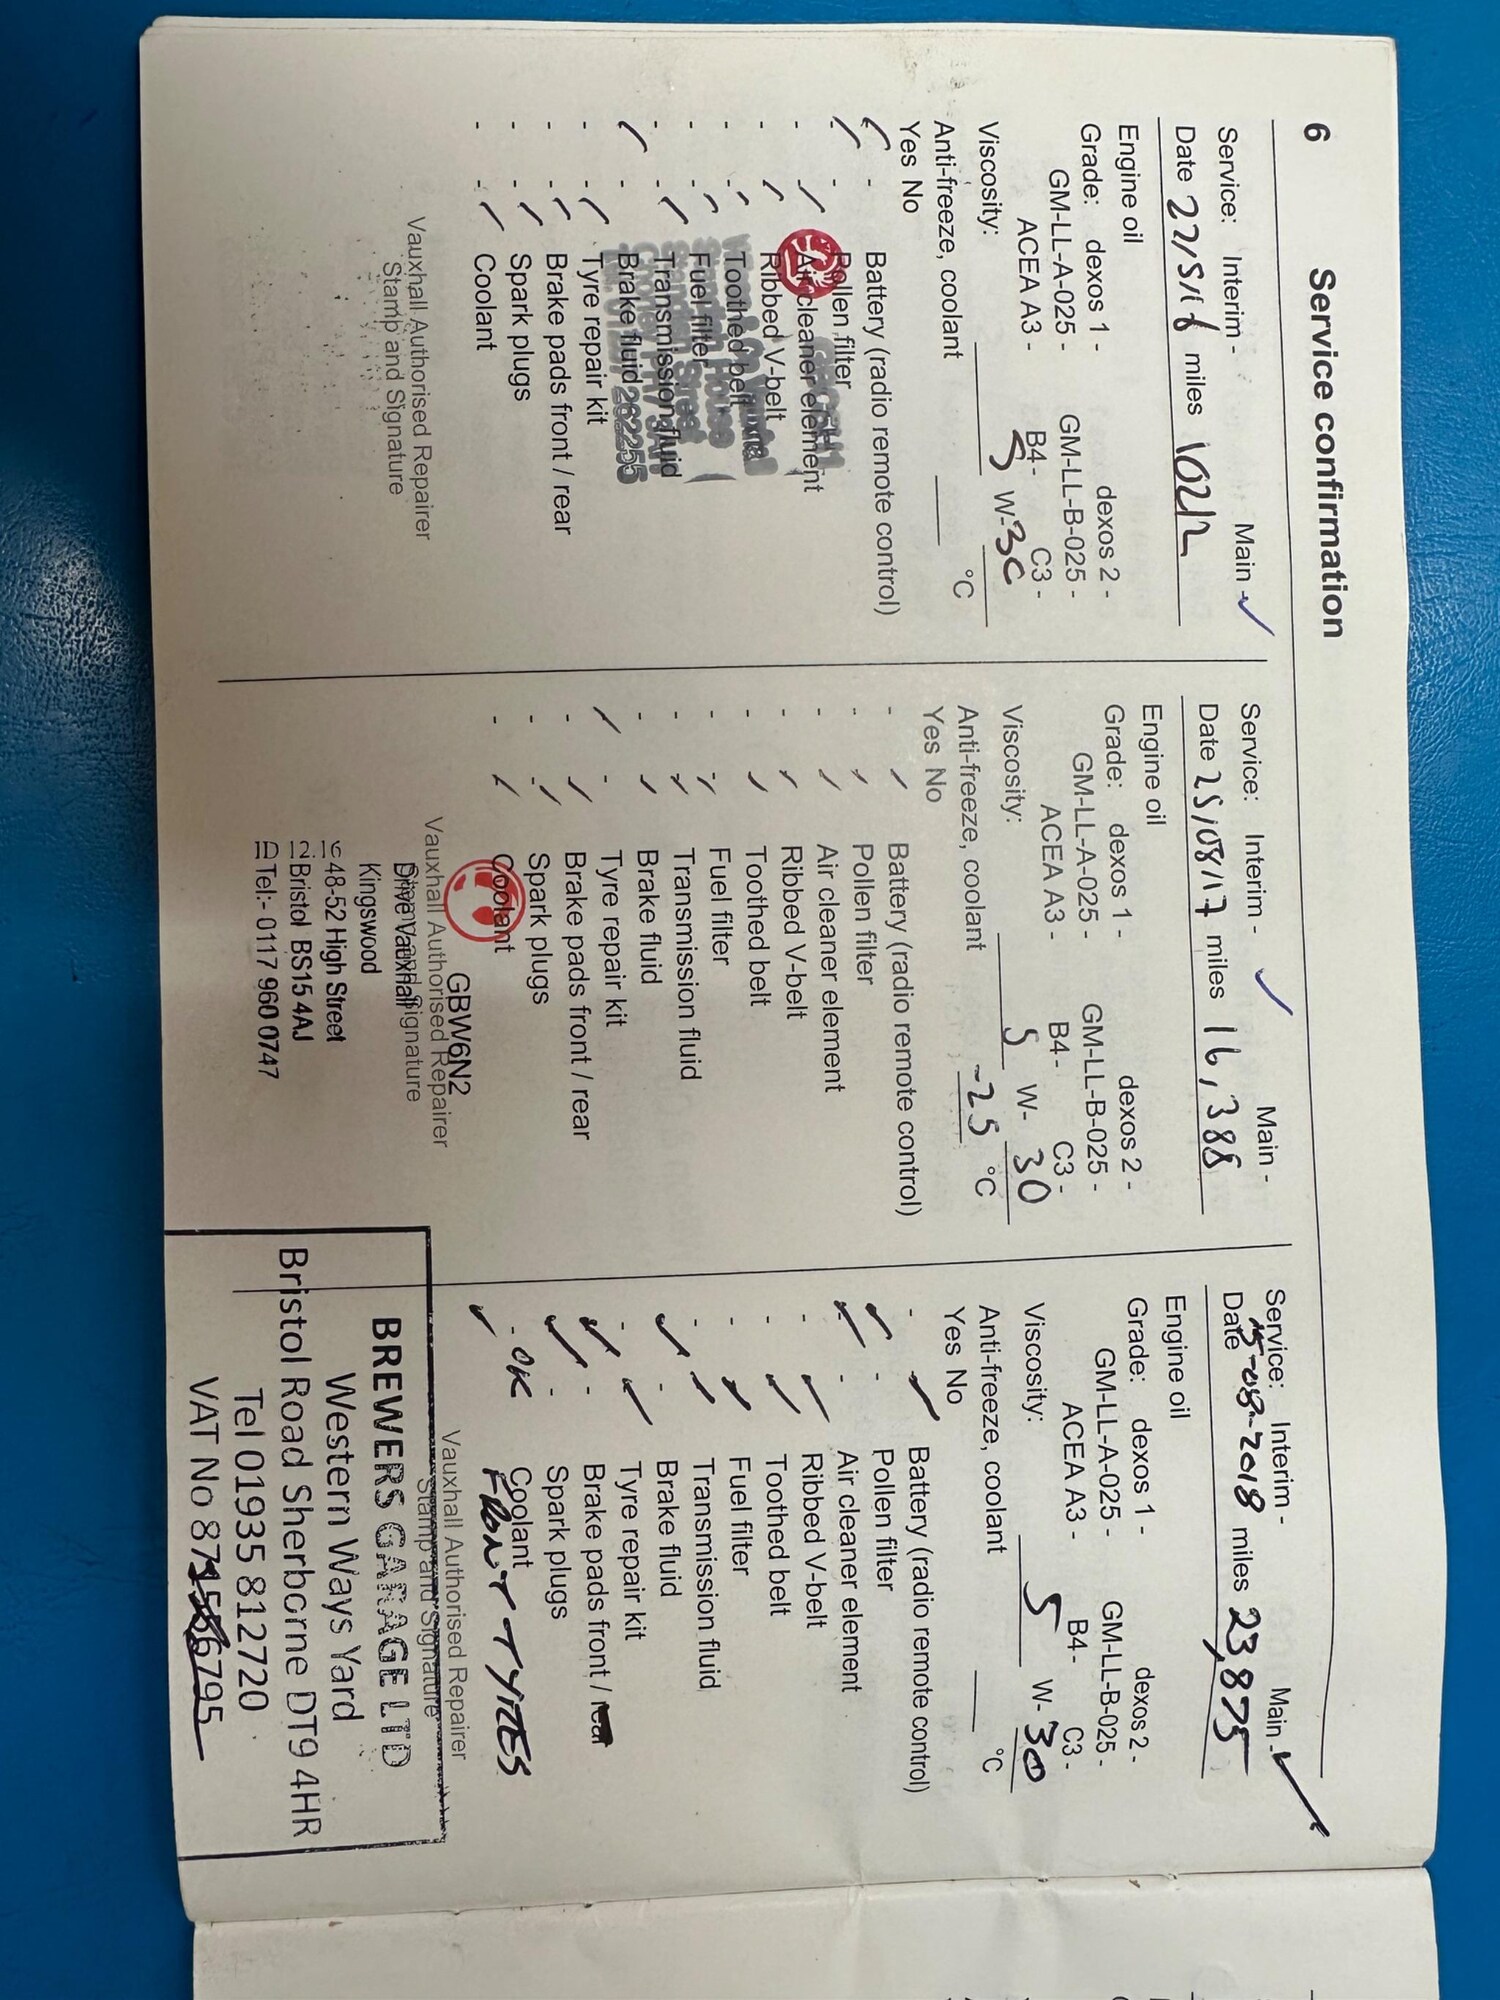 6
Service confirmation
Service: Interim - Main -
Date 22/5/16 miles 10212
Engine oil
Grade: dexos 1 - dexos 2 -
GM-LL-A-025 - GM-LL-B-025 -
ACEA A3 - B4- C3 -
Viscosity: 5 W-30
Anti-freeze, coolant °C
Yes No
Battery (radio remote control)
Pollen filter
Air cleaner element
Ribbed V-belt
Toothed belt
Fuel filter
Transmission fluid
Brake fluid 262255
Tyre repair kit
Brake pads front / rear
Spark plugs
Coolant
Vauxhall Authorised Repairer
Stamp and Signature
Service: Interim - Main -
Date 25/08/17 miles 16,388
Engine oil
Grade: dexos 1 - dexos 2 -
GM-LL-A-025 - GM-LL-B-025 -
ACEA A3 - B4- C3 -
Viscosity: 5 W- 30
Anti-freeze, coolant -25 °C
Yes No
Battery (radio remote control)
Pollen filter
Air cleaner element
Ribbed V-belt
Toothed belt
Fuel filter
Transmission fluid
Brake fluid
Tyre repair kit
Brake pads front / rear
Spark plugs
Coolant
GBW6N2
Vauxhall Authorised Repairer
Stamp and Signature
Drive Vauxhall
Kingswood
48-52 High Street
Bristol BS15 4AJ
Tel:- 0117 960 0747
Service: Interim - Main -
Date 15-08-2018 miles 23,875
Engine oil
Grade: dexos 1 - dexos 2 -
GM-LL-A-025 - GM-LL-B-025 -
ACEA A3 - B4- C3 -
Viscosity: 5 W-30
Anti-freeze, coolant °C
Yes No
Battery (radio remote control)
Pollen filter
Air cleaner element
Ribbed V-belt
Toothed belt
Fuel filter
Transmission fluid
Brake fluid
Tyre repair kit
Brake pads front / rear
Spark plugs
OK Coolant
FRONT TYRES
Vauxhall Authorised Repairer
Stamp and Signature
BREWERS GARAGE LTD
Western Ways Yard
Bristol Road Sherborne DT9 4HR
Tel 01935 812720
VAT No